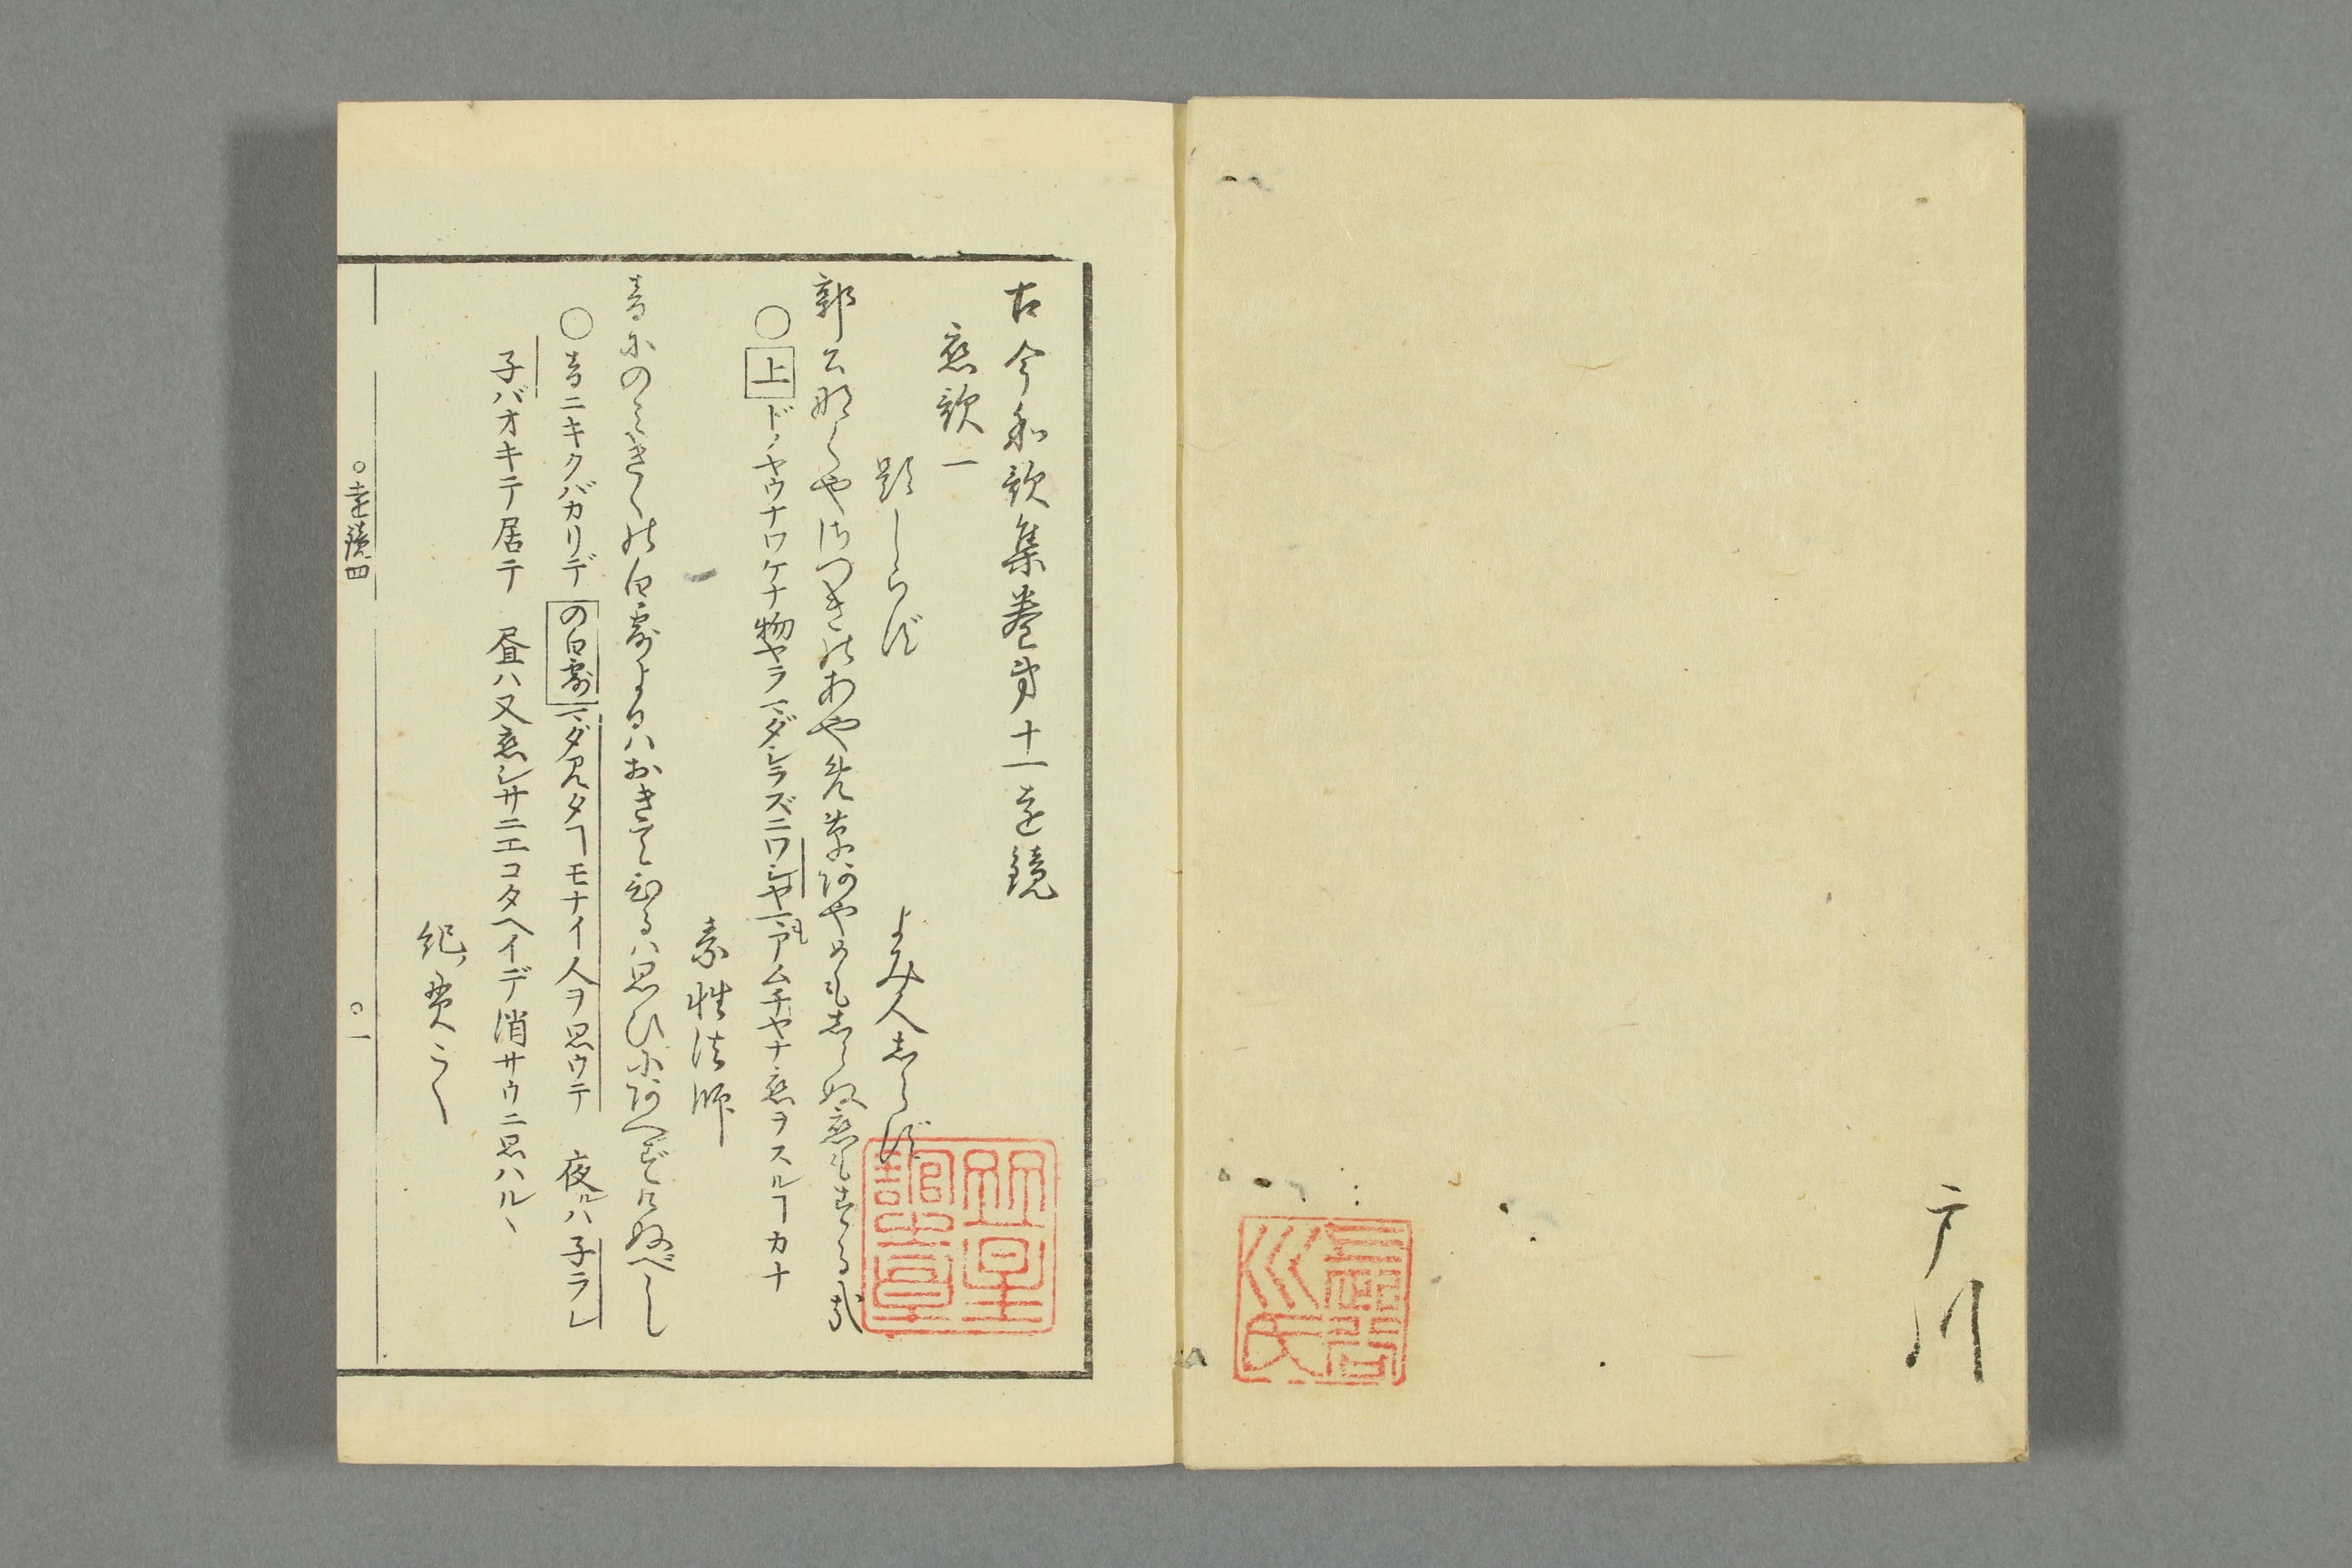 戸川
古今和歌集巻第十一遠鏡
恋歌一
題しらず
よみ人しらず
郭公なくやさつきのあやめ草あやめもしらぬ恋もする哉
○上ドノヤウナワケナ物ヤラマダシラズニワシヤマアムチヤナ恋ヲスルヿカナ
素性法師
音にのみきくの白露よるハおきてひるハ思ひにあへずけぬべし
○音ニキクバカリデの白露マダ見タヿモナイ人ヲ思ウテ　夜ルハ子ラレ
子バオキテ居テ　昼ハ又恋シサニエコタヘイデ消サウニ思ハルヽ
紀ノ貫之
○遠鏡四
○一